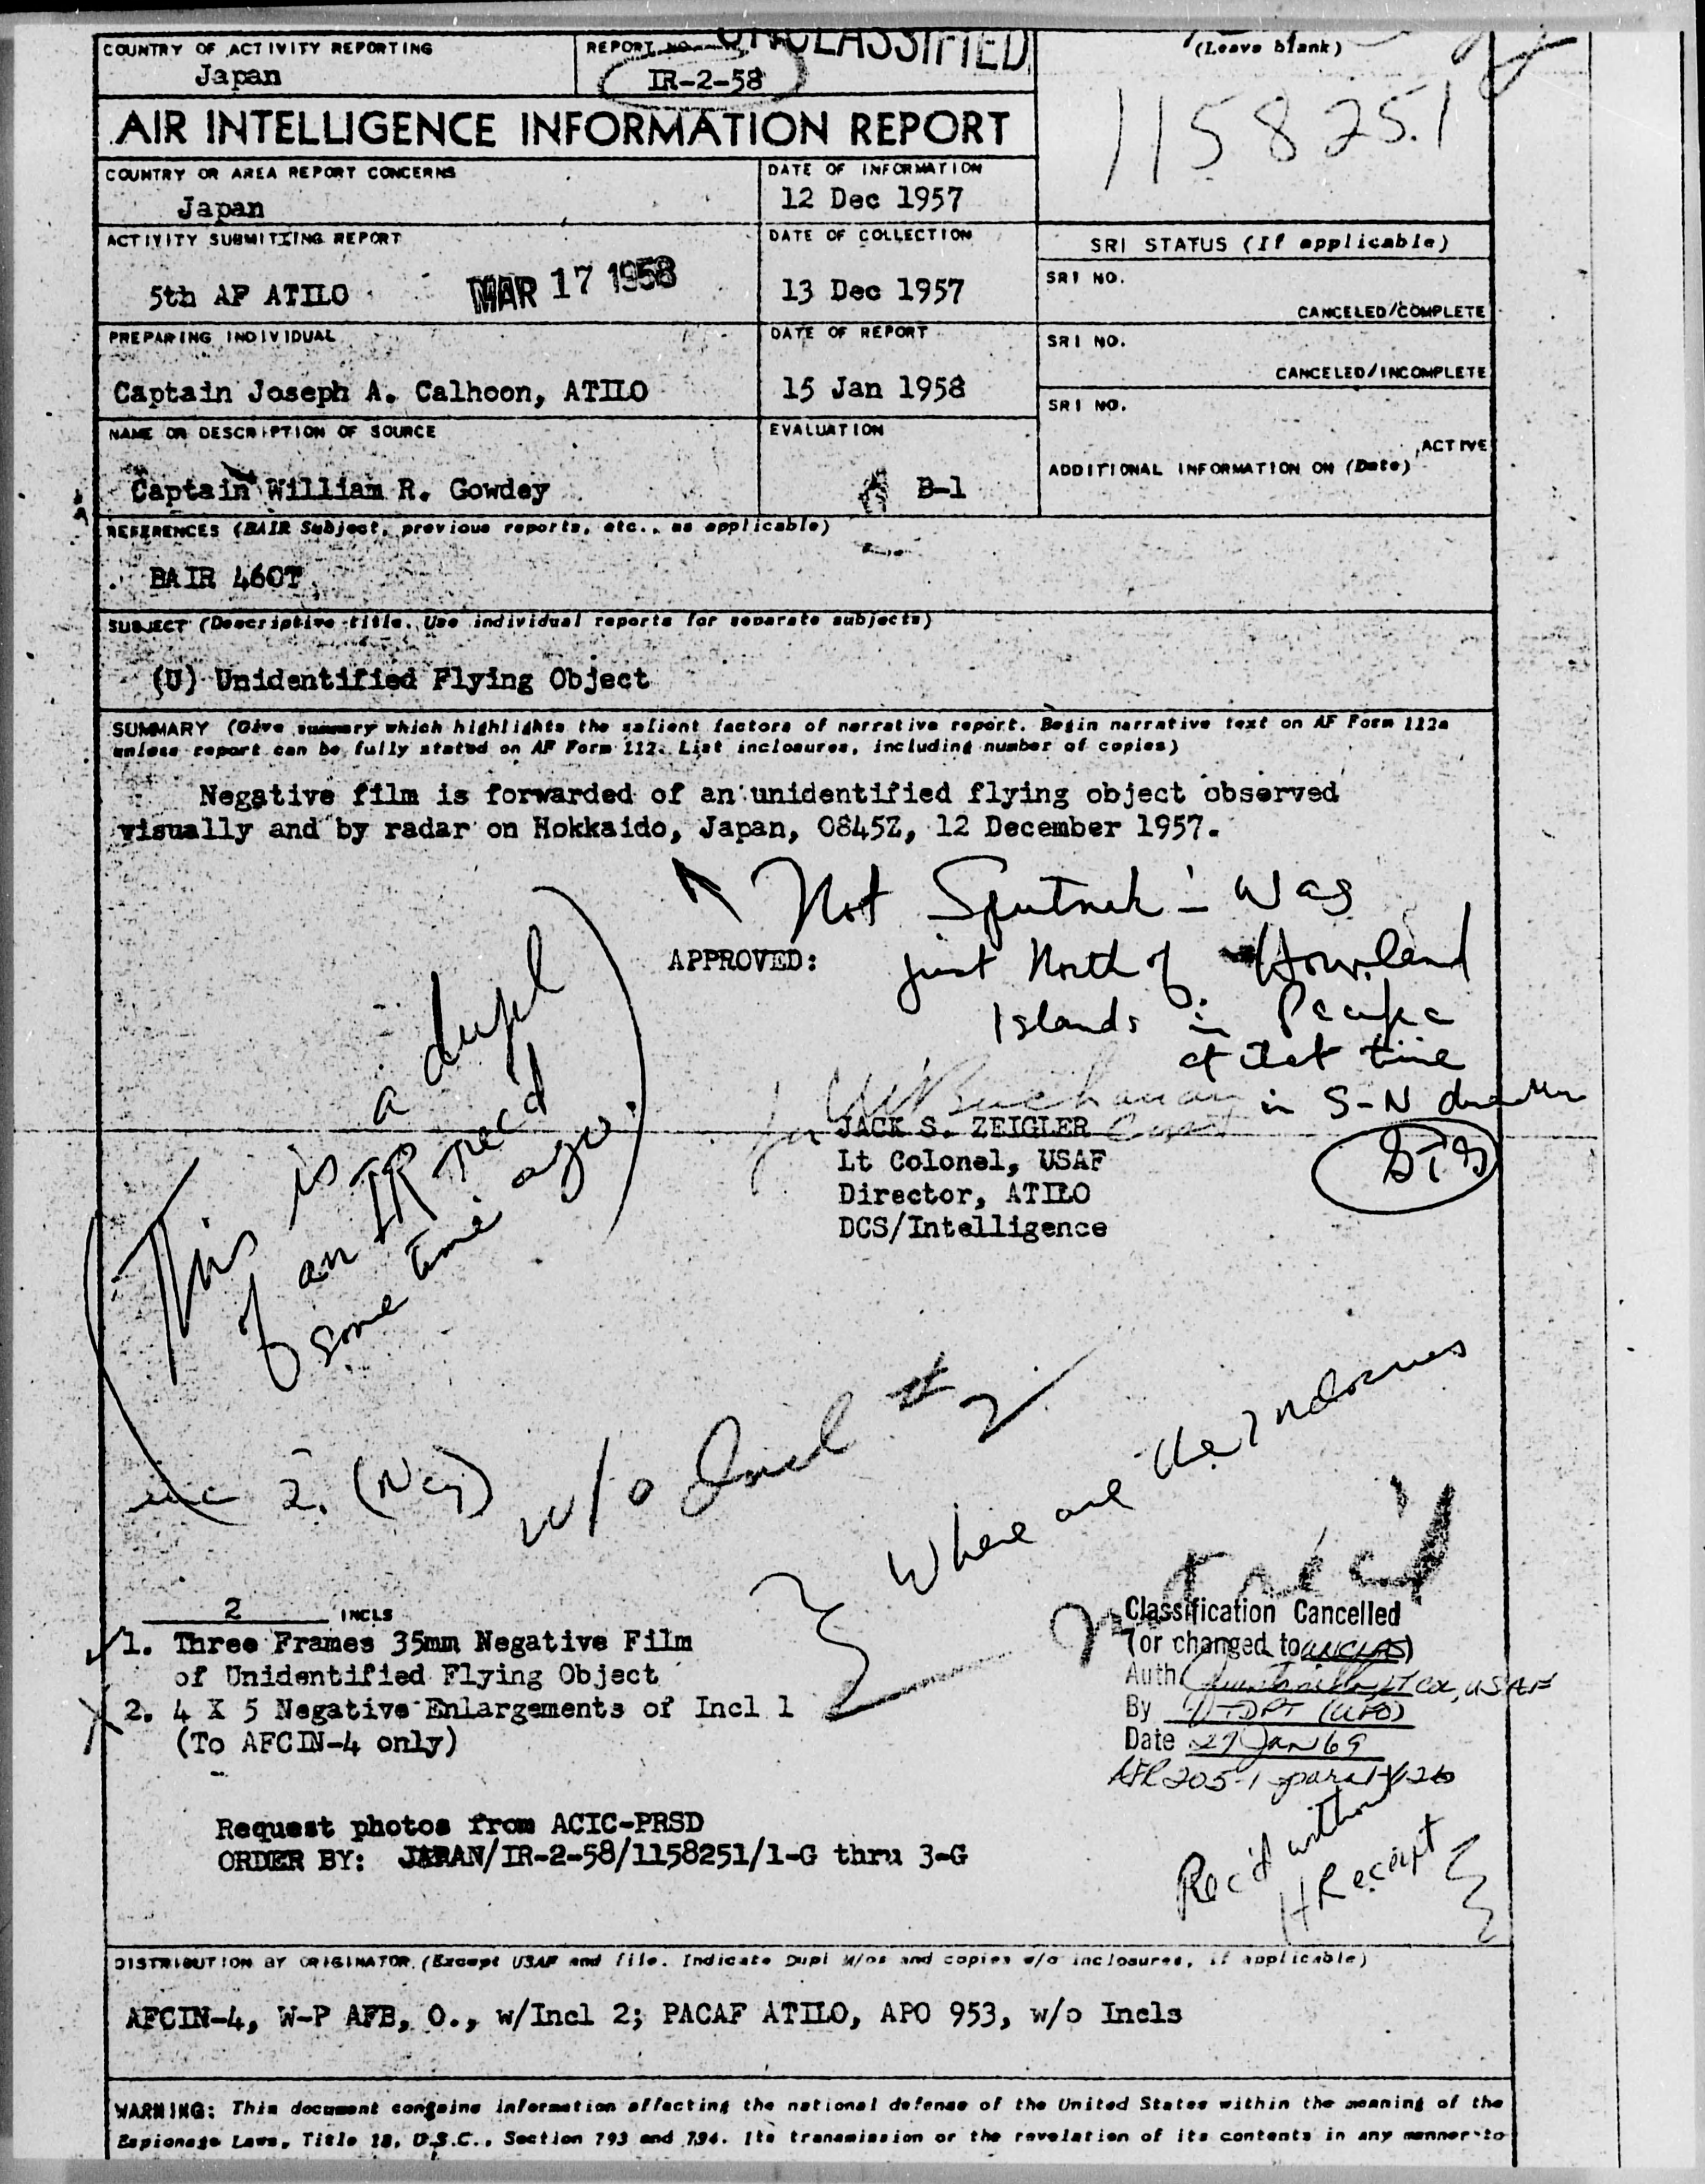 COUNTRY OF ACTIVITY REPORTING
Japan
REPORT NO.
UNCLASSIFIED
IR-2-58
(Leave blank)
115825.1
AIR INTELLIGENCE INFORMATION REPORT
COUNTRY OR AREA REPORT CONCERNS
Japan
DATE OF INFORMATION
12 Dec 1957
ACTIVITY SUBMITTING REPORT
5th AF ATILO
MAR 17 1958
DATE OF COLLECTION
13 Dec 1957
SRI STATUS (If applicable)
SRI NO.
CANCELED/COMPLETE
PREPARING INDIVIDUAL
Captain Joseph A. Calhoon, ATILO
DATE OF REPORT
15 Jan 1958
SRI NO.
CANCELED/INCOMPLETE
NAME OR DESCRIPTION OF SOURCE
Captain William R. Gowdey
EVALUATION
B-1
SRI NO.
ACTIVE
ADDITIONAL INFORMATION ON (Date)
REFERENCES (BAIR Subject, previous reports, etc., as applicable)
BAIR 460T
SUBJECT (Descriptive title. Use individual reports for separate subjects)
(U) Unidentified Flying Object
SUMMARY (Give summary which highlights the salient factors of narrative report. Begin narrative text on AF Form 112a
unless report can be fully stated on AF Form 112. List inclosures, including number of copies)
Negative film is forwarded of an unidentified flying object observed
visually and by radar on Hokkaido, Japan, 0845Z, 12 December 1957.
Not Sputnik - Was
just North of Howland
Islands in Pacific
at that time
in S-N direction
APPROVED:
for W Buchanan Capt
JACK S. ZEIGLER
Lt Colonel, USAF
Director, ATILO
DCS/Intelligence
(This is a dupl
of an IR rec'd
some time ago.)
inc 2. (Neg)
w/o Incl #2
Where are the Indorsements
not rec'd
2 INCLS
1. Three Frames 35mm Negative Film
of Unidentified Flying Object
2. 4 X 5 Negative Enlargements of Incl 1
(To AFCIN-4 only)
Classification Cancelled
(or changed to UNCLAS)
Auth Quintanilla, LT Col, USAF
By TDPT (UFO)
Date 27 Jan 69
AFR 205-1
Request photos from ACIC-PRSD
ORDER BY: JAPAN/IR-2-58/1158251/1-G thru 3-G
Rec'd without
Receipt
DISTRIBUTION BY ORIGINATOR (Except USAF and file. Indicate Dupl M/os and copies w/o inclosures, if applicable)
AFCIN-4, W-P AFB, O., w/Incl 2; PACAF ATILO, APO 953, w/o Incls
WARNING: This document contains information affecting the national defense of the United States within the meaning of the
Espionage Laws, Title 18, U.S.C., Section 793 and 794. Its transmission or the revelation of its contents in any manner to